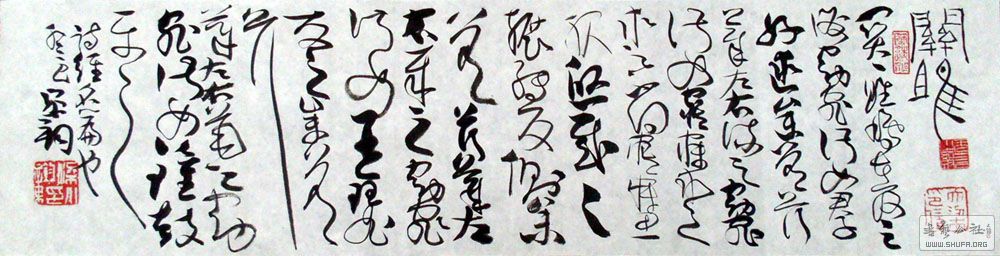 關雎
關〻雎鳩在河之
洲窈窕淑女君子
好逑參差荇
菜左右流之窈窕
淑女寤寐求之
求之不得寤寐思
服悠哉〻
輾轉反側參
差荇菜左
右采之窈窕
淑女琴瑟
友之參差
荇
菜左右芼之窈
窕淑女鐘鼓
樂之
詩經名篇也
WWW.SHUFA.ORG